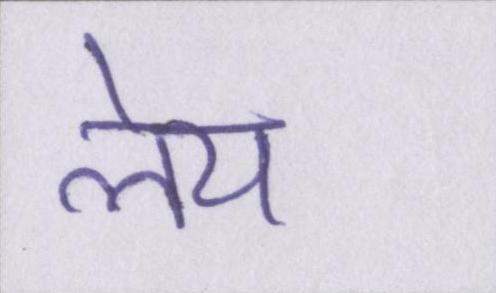 लेय